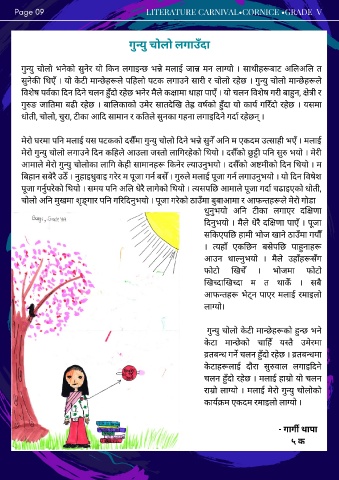 Page 09
LITERATURE CARNIVAL •CORNICE •GRADE V
गुन्यु चोलो लगाउँदा
गुन्यु चोलो भनेको सुनेर यो किन लगाइन्छ भन्ने मलाई जान्न मन लाग्यो । साथीहरूबाट अलिअलि त
सुनेकी थिएँ । यो केटी मान्छेहरूले पहिलो पटक लगाउने सारी र चोलो रहेछ । गुन्यु चोलो मान्छेहरूले
विशेष पर्वका दिन दिने चलन हुँदो रहेछ भनेर मैले कक्षामा थाहा पाएँ । यो चलन विशेष गरी बाहुन, क्षेत्री र
गुरुङ जातिमा बढी रहेछ । बालिकाको उमेर सातदेखि तेह्र वर्षको हुँदा यो कार्य गरिँदो रहेछ । यसमा
धोती, चोलो, चुरा, टीका आदि सामान र कतिले सुनका गहना लगाइदिने गर्दा रहेछन् ।
मेरो घरमा पनि मलाई यस पटकको दसैँमा गुन्यु चोलो दिने भन्ने सुनेँ अनि म एकदम उत्साही भएँ । मलाई
मेरो गुन्यु चोलो लगाउने दिन कहिले आउला जस्तो लागिरहेको थियो । दसैँको छुट्टी पनि सुरु भयो । मेरी
आमाले मेरो गुन्यु चोलोका लागि केही सामानहरू किनेर ल्याउनुभयो । दसैँको अष्टमीको दिन थियो । म
बिहान सबेरै उठेँ । नुहाइधुवाइ गरेर म पूजा गर्न बसेँ । गुरुले मलाई पूजा गर्न लगाउनुभयो । यो दिन विषेश
पूजा गर्नुपरेको थियो । समय पनि अलि धेरै लागेको थियो । त्यसपछि आमाले पूजा गर्दा चढाइएको धोती,
चोलो अनि मुखमा शृङ्गार पनि गरिदिनुभयो । पूजा गरेको ठाउँमा बुबाआमा र आफन्तहरूले मेरो गोडा
धुनुभयो अनि टीका लगाएर दक्षिणा
दिनुभयो । मैले धेरै दक्षिणा पाएँ । पूजा
सकिएपछि हामी भोज खाने ठाउँमा गयौँ
। त्यहाँ एकछिन बसेपछि पाहुनाहरू
आउन थाल्नुभयो । मैले उहाँहरूसँग
फोटो खिचेँ । भोजमा फोटो
खिच्दाखिच्दा म त थाकेँ । सबै
आफन्तहरू भेट्न पाएर मलाई रमाइलो
लाग्यो।
गुन्यु चोलो केटी मान्छेहरूको हुन्छ भने
केटा मान्छेको चाहिँ यस्तै उमेरमा
व्रतबन्ध गर्ने चलन हुँदो रहेछ । व्रतबन्धमा
केटाहरूलाई दौरा सुरुवाल लगाइदिने
चलन हुँदो रहेछ । मलाई हाम्रो यो चलन
राम्रो लाग्यो । मलाई मेरो गुन्यु चोलोको
कार्यक्रम एकदम रमाइलो लाग्यो ।
- गार्गी थापा
५ क